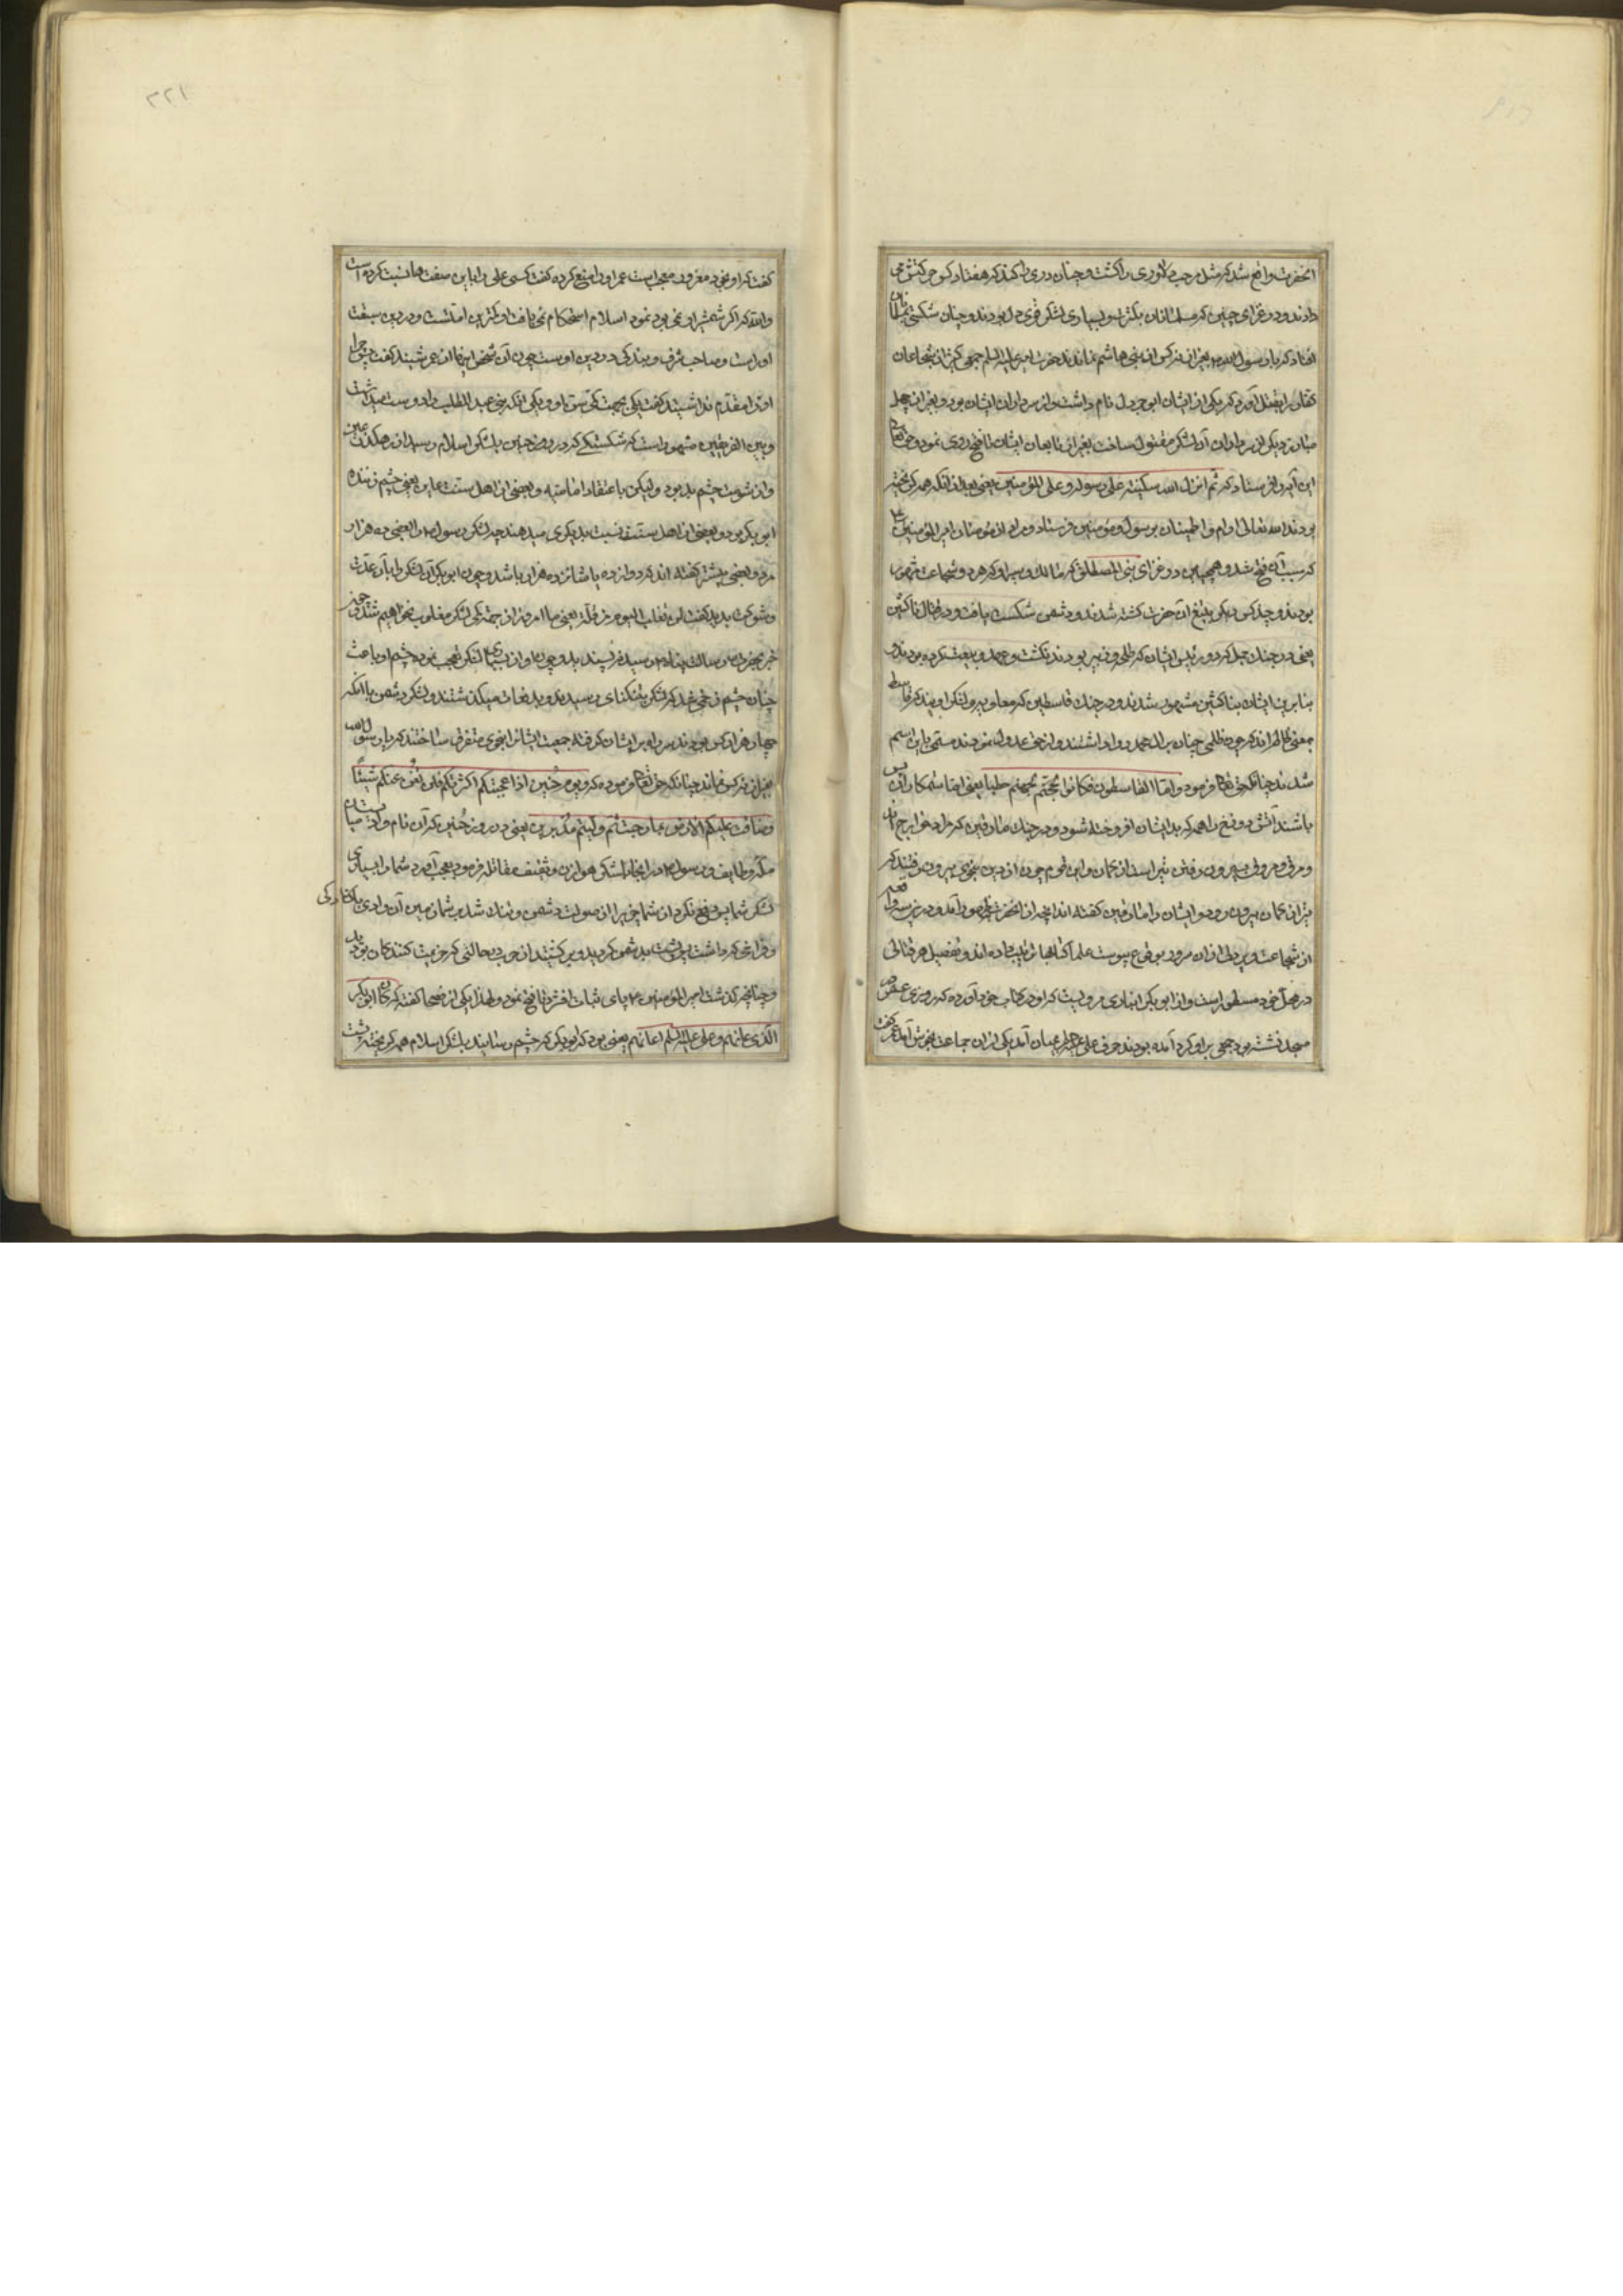 آنحضرت واقع شد که مثل مرحب دلاوری را کشت و چنان دری را کند که هفتاد کس حرکتش می
دادند و در غزای حنین که مسلمانان بکثرت و بسیاری لشکر قوی دل بودند و چنان شکستی
افتاد که با رسول الله بغیر از نه کس از بنی هاشم نماندند حضرت امیر علیه السلم جمعی کثیر از شجاعان
کفار را بقتل آورد که یکی از ایشان ابو جردل نام داشت و از سرداران ایشان بود و بغیر از چهل
مبارز دیگر از سرداران آن لشکر مقتول ساخت بغیر از تابعان ایشان تا فتح روی نمود و حق تعالی
این آیه را فرستاد که ثم انزل الله سکینته علی رسوله و علی المؤمنین یعنی بعد از آنکه همه گریخته
بودند الله تعالی آرام و اطمینان بر رسول و مؤمنین فرستاد و مراد از مؤمنان امیر المؤمنین
که سبب آن فتح شد و همچنین در غزای بنی المصطلق که مالک و پسر او که هر دو بشجاعت مشهور
بودند و چند کس دیگر بتیغ آن حضرت کشته شدند و دشمن شکست یافت و در قتال ناکثین
یعنی در جنگ جمل که دو رئیس ایشان که طلحه و زبیر بودند نکث و عهد و بیعت کرده بودند و
بنابرین ایشان بناکثین مشهور شدند و در جنگ قاسطین که معاویه و لشکر او بیند که قاسط
بمعنی ظالم اند که چون ظلمی چنان بر آل محمد روا داشتند و از حق عدول نمودند مسمی باین اسم
شدند چنانکه حق تعالی فرمود و اما القاسطون فکانوا لجهنم حطبا یعنی اما ستمکاران پس
باشند آتش دوزخ را همه که بدیشان افروخته شود و در جنگ مارقین که مراد خوارج اند
و مرق و مروق بیرون رفتن تیر است از کمان و این قوم چون از دین بنوعی بیرون رفتند که
تیر از کمان بیرون رود و ایشان را مارقین گفته اند آنچه از آنحضرت بظهور آمد و درین سه واقعه
از شجاعت و پر دلی از آن سرور بوقوع پیوست علما کتابها ترتیب داده اند و تفصیل هر قتالی
در محل خود مسطور است و از ابو بکر انباری مرویست که او در کتاب خود آورده که روزی عمر در
مسجد نشسته بود جمعی بر او گرد آمده بودند چون علی علیه السلم بمیان آمد یکی از آن جماعت بخوش آمد عمر گفت
۲۲۱
گفت که او بخود مغرور و معجب است عمر او را منع کرده گفت کسی علی را باین صفت ها نسبت کرده است
والله که اگر شمشیر او نمی بود عمود اسلام استحکام نمی یافت او بهترین امتست و در دین سبقت
او راست و صاحب شرف و بندگی در دین اوست چون آن شخص اینها از عمر شنید گفت پس چرا
او را مقدم نداشتید گفت یکی بجهت کمی سن او و یکی آنکه بنی عبد المطلب را دوست میداشت
و بین الفریقین مشهور است که شکستگی که در روز حنین بلشکر اسلام رسید از رهگذر عین
و از شومیت چشم بد بود و لیکن باعتقاد امامیه و بعضی از اهل سنت عاین یعنی چشم زننده
ابو بکر بود و بعضی از اهل سنت نسبت بدیگری میدهند چه لشکر رسول را بعضی ده هزار
مرد و بعضی بیشتر گفته اند که دوازده یا شانزده هزار باشد و چون ابو بکر آن لشکر را بآن عدت
و شوکت بدید گفت لن نغلب الیوم من قلة یعنی ما امروز از جهت کمی لشکر مغلوب نخواهیم شد و چون
خبر بحضرت رسالت پناه رسید نپسندید و چون او از بسیاری لشکر تعجب نمود چشم او باعث
چنان چشم زخمی شد که لشکر بتنگنای رسیدند و بدفعات میگذشتند و لشکر دشمن با آنکه
چهار هزار کس بودند سر راه بر ایشان گرفته جمعیت ایشانرا بنحوی متفرق ساختند که با رسول الله
بغیر از نه کس نماند چنانکه حق تعالی فرموده که و یوم حنین اذا عجبتکم کثرتکم فلم تغن عنکم شیئا
و ضاقت علیکم الارض بما رحبت ثم ولیتم مدبرین یعنی در روز حنین که آن نام وادیست میان
مکه و طایف و رسول در آنجا با لشکر هوازن و ثقیف مقاتله فرمود بعجب آورد شما را بسیاری
لشکر شما پس دفع نکرد از شما چیزی را از صولت دشمن و تنگ شد بر شما زمین آن وادی با آن بزرگی
و فراخی که داشت پس پشت بدشمن کردید و برگشتید از حرب بحالتی که هزیمت کنندگان بودید
و چنانچه گذشت امیر المؤمنین پای ثبات افشرد تا فتح نمود و لهذا یکی از فصحا گفته که کان ابو بکر
الذی عانهم و علی علیه السلم اعانهم یعنی بود که ابو بکر که چشم رسانید بلشکر اسلام همه گریخته پشت